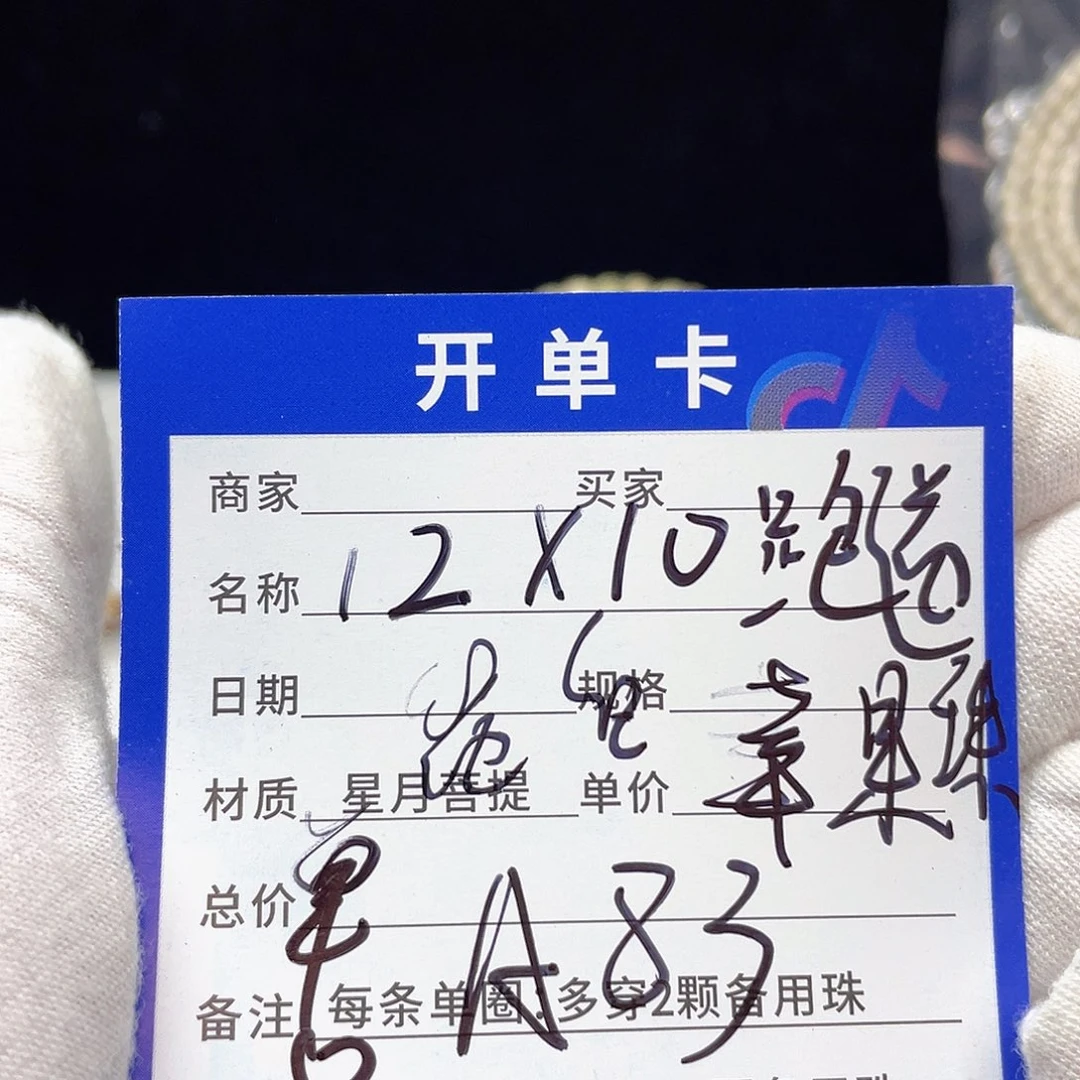 开单卡
商家 买家
名称 12X10 跑道
日期 规格
苹果珠
材质 星月菩提 单价
总价 单 A83
备注 每条单圈：多穿2颗备用珠